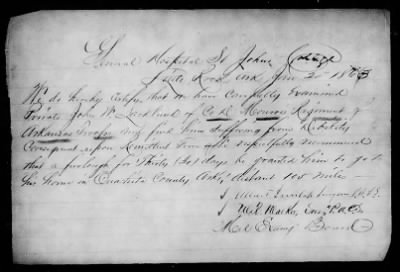 General Hospital St Johns College
Little Rock Ark Jan 2 1863
We do hereby Certify that we have Carefully Examined
Private John W. of Co Monroes Regiment of
Arkansas Troops and find him suffering from
upon Remittent fever respectfully recommend
that a furlough for thirty (30) days be granted him to go to
his home in Ouachita County Ark, distant 105 miles
Surgeon P.A.C.S.
W.
Med Examg Board